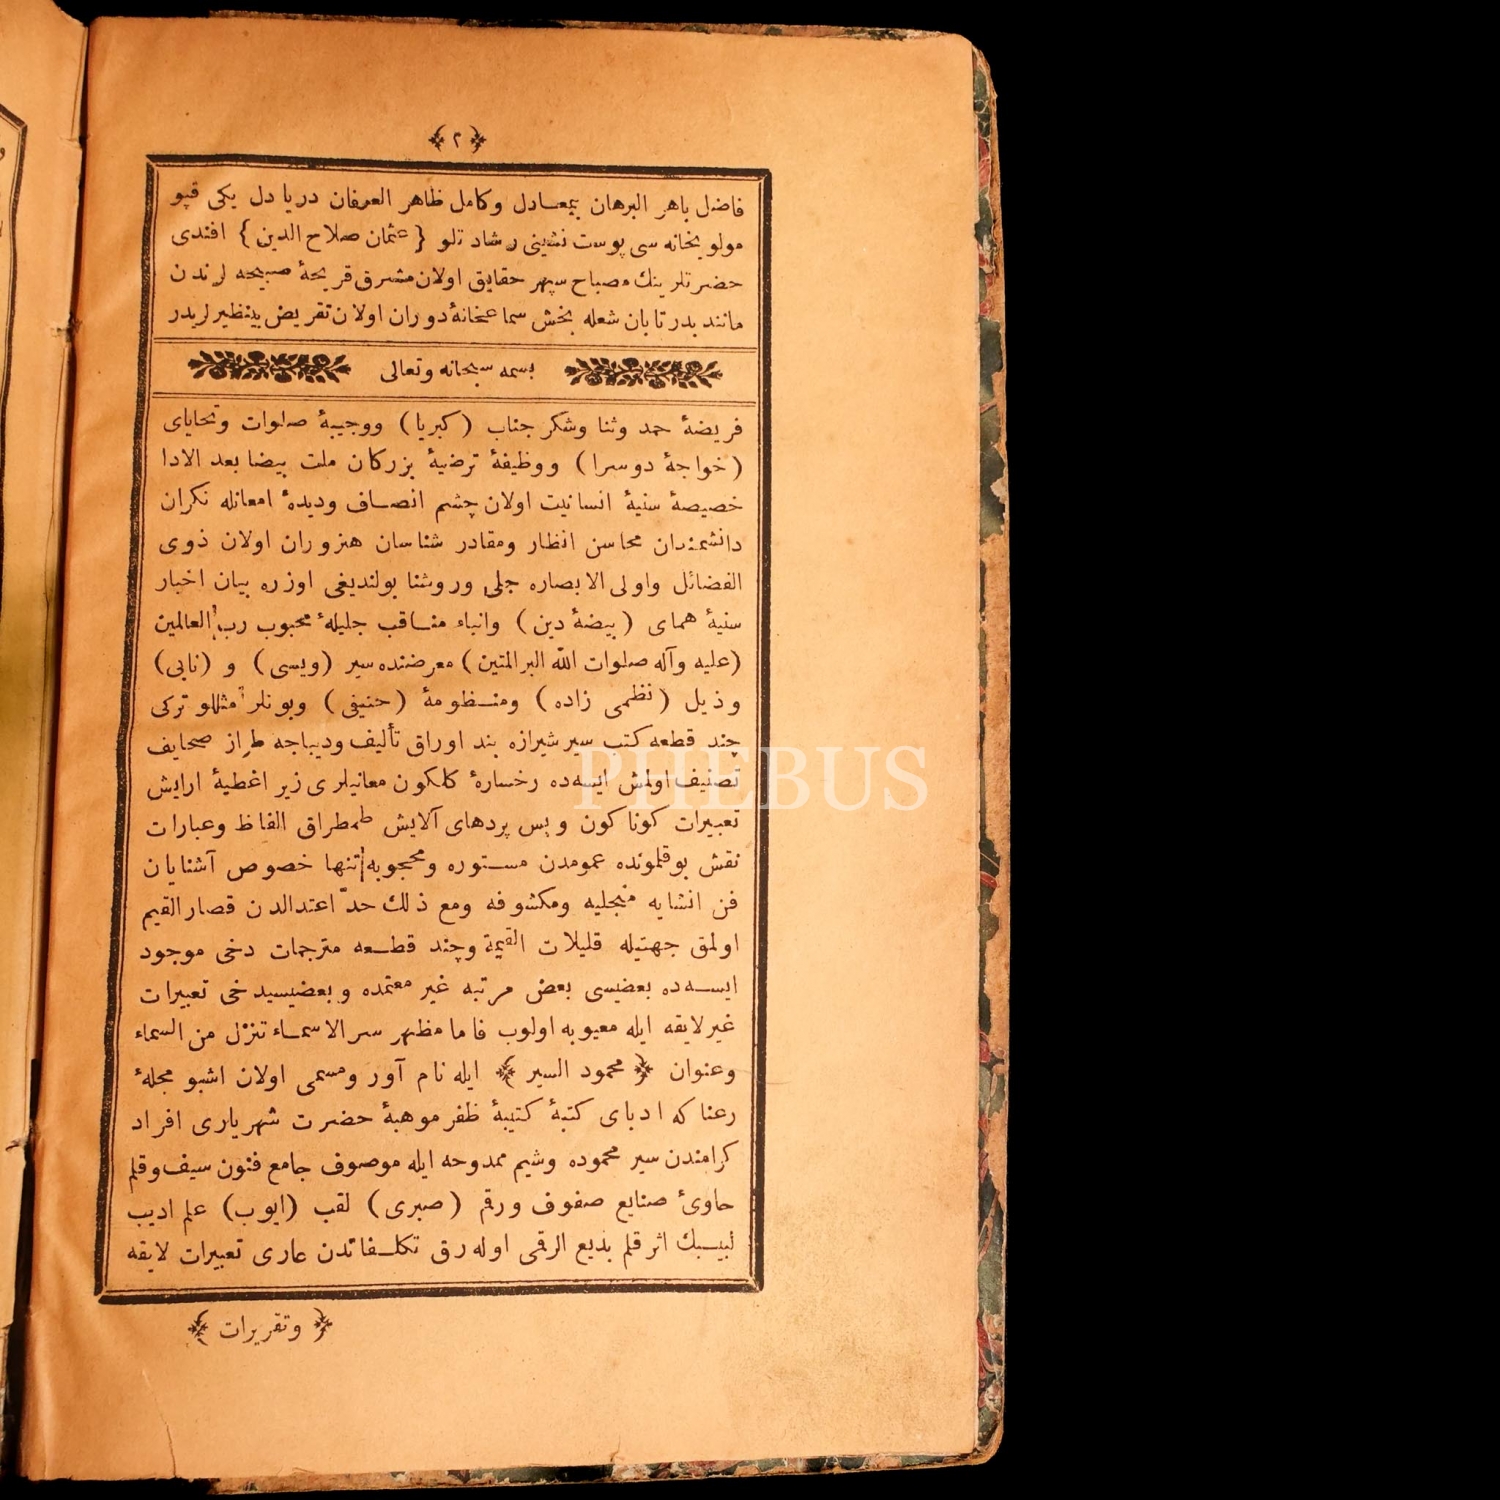 ﴿ ٢ ﴾
فاضل باهر البرهان بيمعادل وكامل ظاهر العرفان دريا دل يكى قپو
مولويخانه سى پوست نشينى رشادتلو { عثمان صلاح الدين } افندى
حضرتلرينك مصباح سپهر حقايق اولان مشرق قريحۀ صبيحه لرندن
مانند بدر تابان شعله بخش سماعخانۀ دوران اولان تقريض بينظيرلريدر
بسمه سبحانه وتعالى
فريضۀ حمد وثنا وشكر جناب ( كبريا ) ووجيبۀ صلوات وتحاياى
( خواجۀ دوسرا ) ووظيفۀ ترضيۀ بزركان ملت بيضا بعد الادا
خصيصۀ سنيۀ انسانيت اولان چشم انصاف وديدۀ امعانله نكران
دانشمندان محاسن انظار ومقادر شناسان هنزوران اولان ذوى
الفضائل واولى الابصاره جلى وروشنا بولنديغى اوزره بيان اخبار
سنيۀ هماى ( بيضۀ دين ) وانباء مناقب جليلۀ محبوب رب العالمين
( عليه وآله صلوات الله البر المتين ) معرضنده سير ( ويسى ) و ( نابى )
وذيل ( نظمى زاده ) ومنظومۀ ( حنيفى ) وبونلر مثللو تركى
چند قطعه كتب سير شيرازه بند اوراق تأليف وديباجه طراز صحايف
تصنيف اولمش ايسه ده رخسارۀ كلكون معانيلرى زير اغطيۀ ارايش
تعبيرات كوناكون وپس پردهاى آلايش طمطراق الفاظ وعبارات
نقش بوقلمونده عمومدن مستوره ومحجوبه تنها خصوص آشنايان
فن انشايه منجليه ومكشوفه ومع ذلك حد اعتدالدن قصار القيم
اولمق جهتيله قليلات القيمة وچند قطعه مترجمات دخى موجود
ايسه ده بعضيسى بعض مرتبه غير معتمده وبعضيسيدخى تعبيرات
غير لايقه ايله معيوبه اولوب فاما مظهر سر الاسماء تنزل من السماء
وعنوان ﴿ محمود السير ﴾ ايله نام آور ومسمى اولان اشبو مجلۀ
رعنا كه ادباى كتبۀ كتيبۀ ظفر موهبۀ حضرت شهريارى افراد
كرامندن سير محموده وشيم ممدوحه ايله موصوف جامع فنون سيف وقلم
حاوئ صنايع صفوف ورقم ( صبرى ) لقب ( ايوب ) علم اديب
لبيبك اثر قلم بديع الرقمى اوله رق تكلفاتدن عارى تعبيرات لايقه
﴿ وتقريرات ﴾
PHEBUS